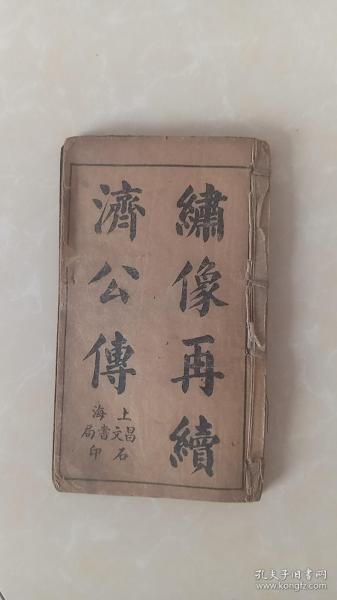 繡像再續
濟公傳
上海
昌文書局
石印
孔夫子旧书网